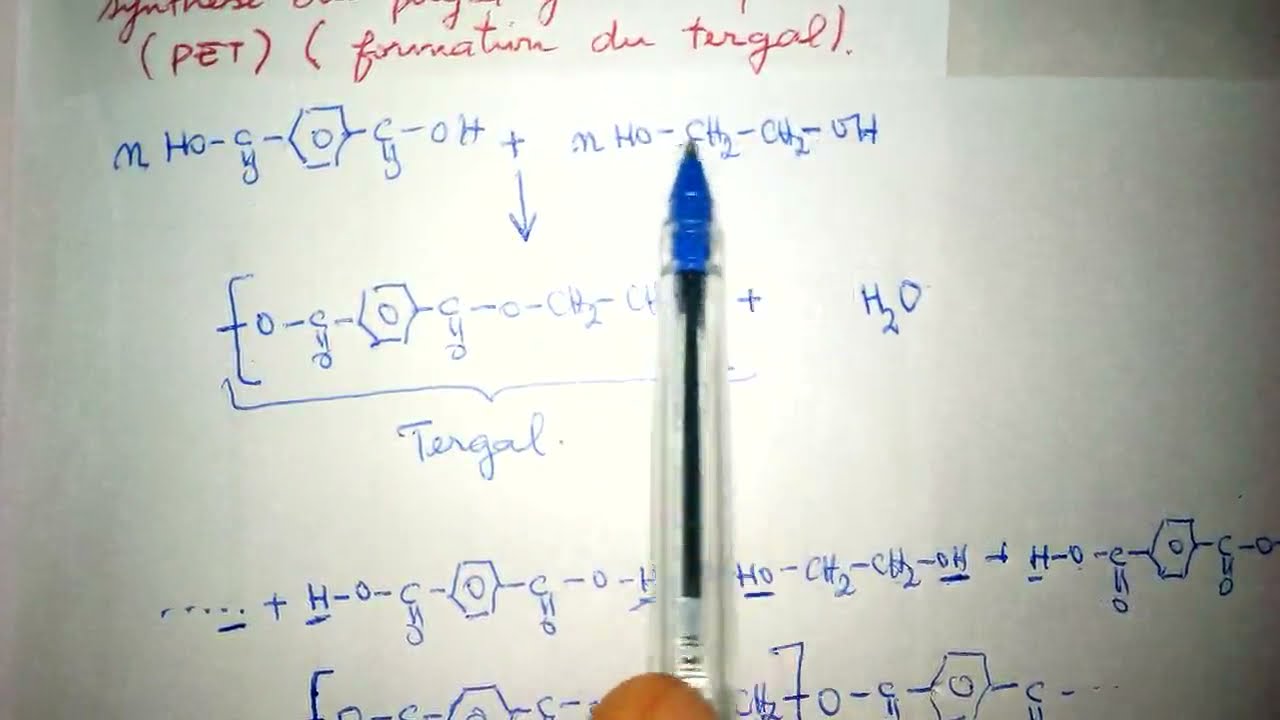 synthèse du
(PET) (formation du tergal).
n HO-C-⌬-C-OH + n HO-CH₂-CH₂-OH
O O
↓
[O-C-⌬-C-O-CH₂-CH + H₂O
O O
Tergal.
..... + H-O-C-⌬-C-O-H HO-CH₂-CH₂-OH + H-O-C-⌬-C-O-
O O O O
[O-C-⌬-C- CH₂]O-C-⌬-C-...